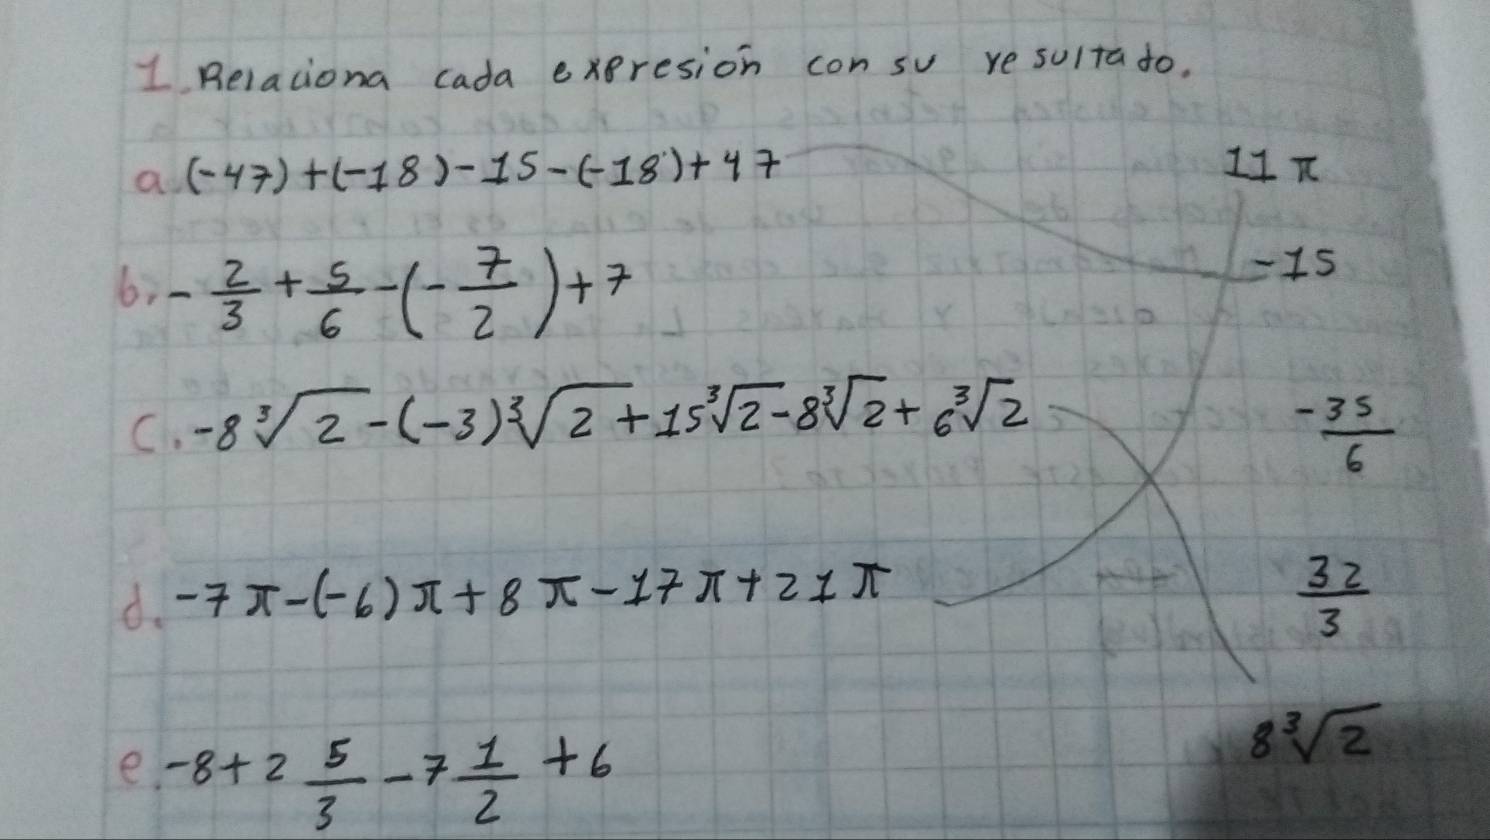 1. Relaciona cada expresión con su resultado.
a. (-47)+(-18)-15-(-18)+47 11π
b. -2/3 + 5/6 -(-7/2)+7 -15
c. -8∛2-(-3)∛2+15∛2-8∛2+6∛2 -35/6
d. -7π-(-6)π+8π-17π+21π 32/3
e. -8+2 5/3 -7 1/2 +6 8∛2